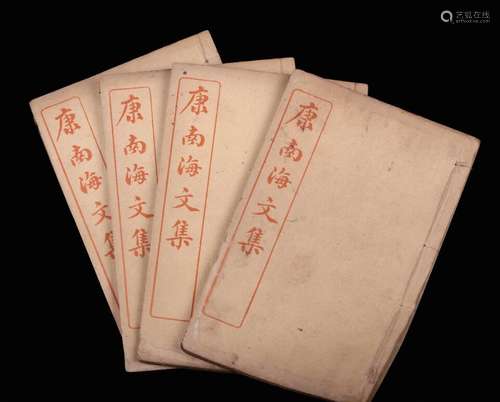 康南海文集
康南海文集
康南海文集
康南海文集
艺狐在线